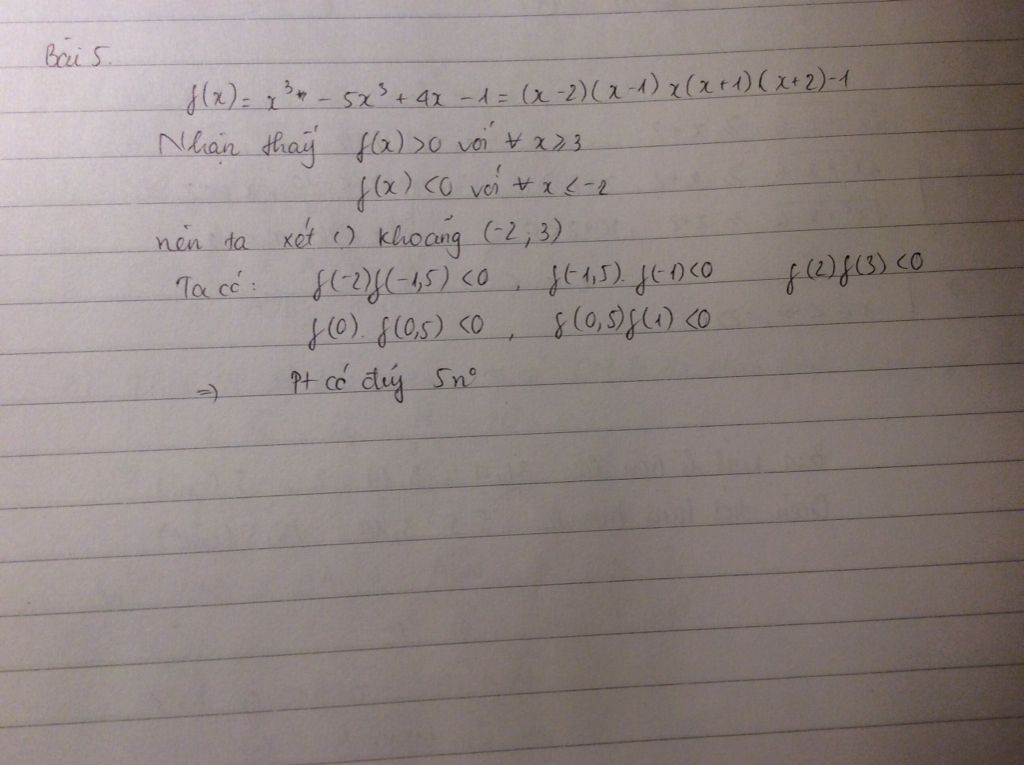 Bài 5.
f(x) = x³ - 5x³ + 4x - 1 = (x-2)(x-1) x(x+1)(x+2)-1
Nhận thấy f(x) >0 với ∀ x ≥ 3
f(x) <0 với ∀ x < -2
nên ta xét () khoảng (-2; 3)
Ta có: f(-2)f(-1,5) <0 , f(-1,5). f(-1)<0 f(2)f(3) <0
f(0). f(0,5) <0 , f(0,5)f(1) <0
=> Pt có đúg 5 n°